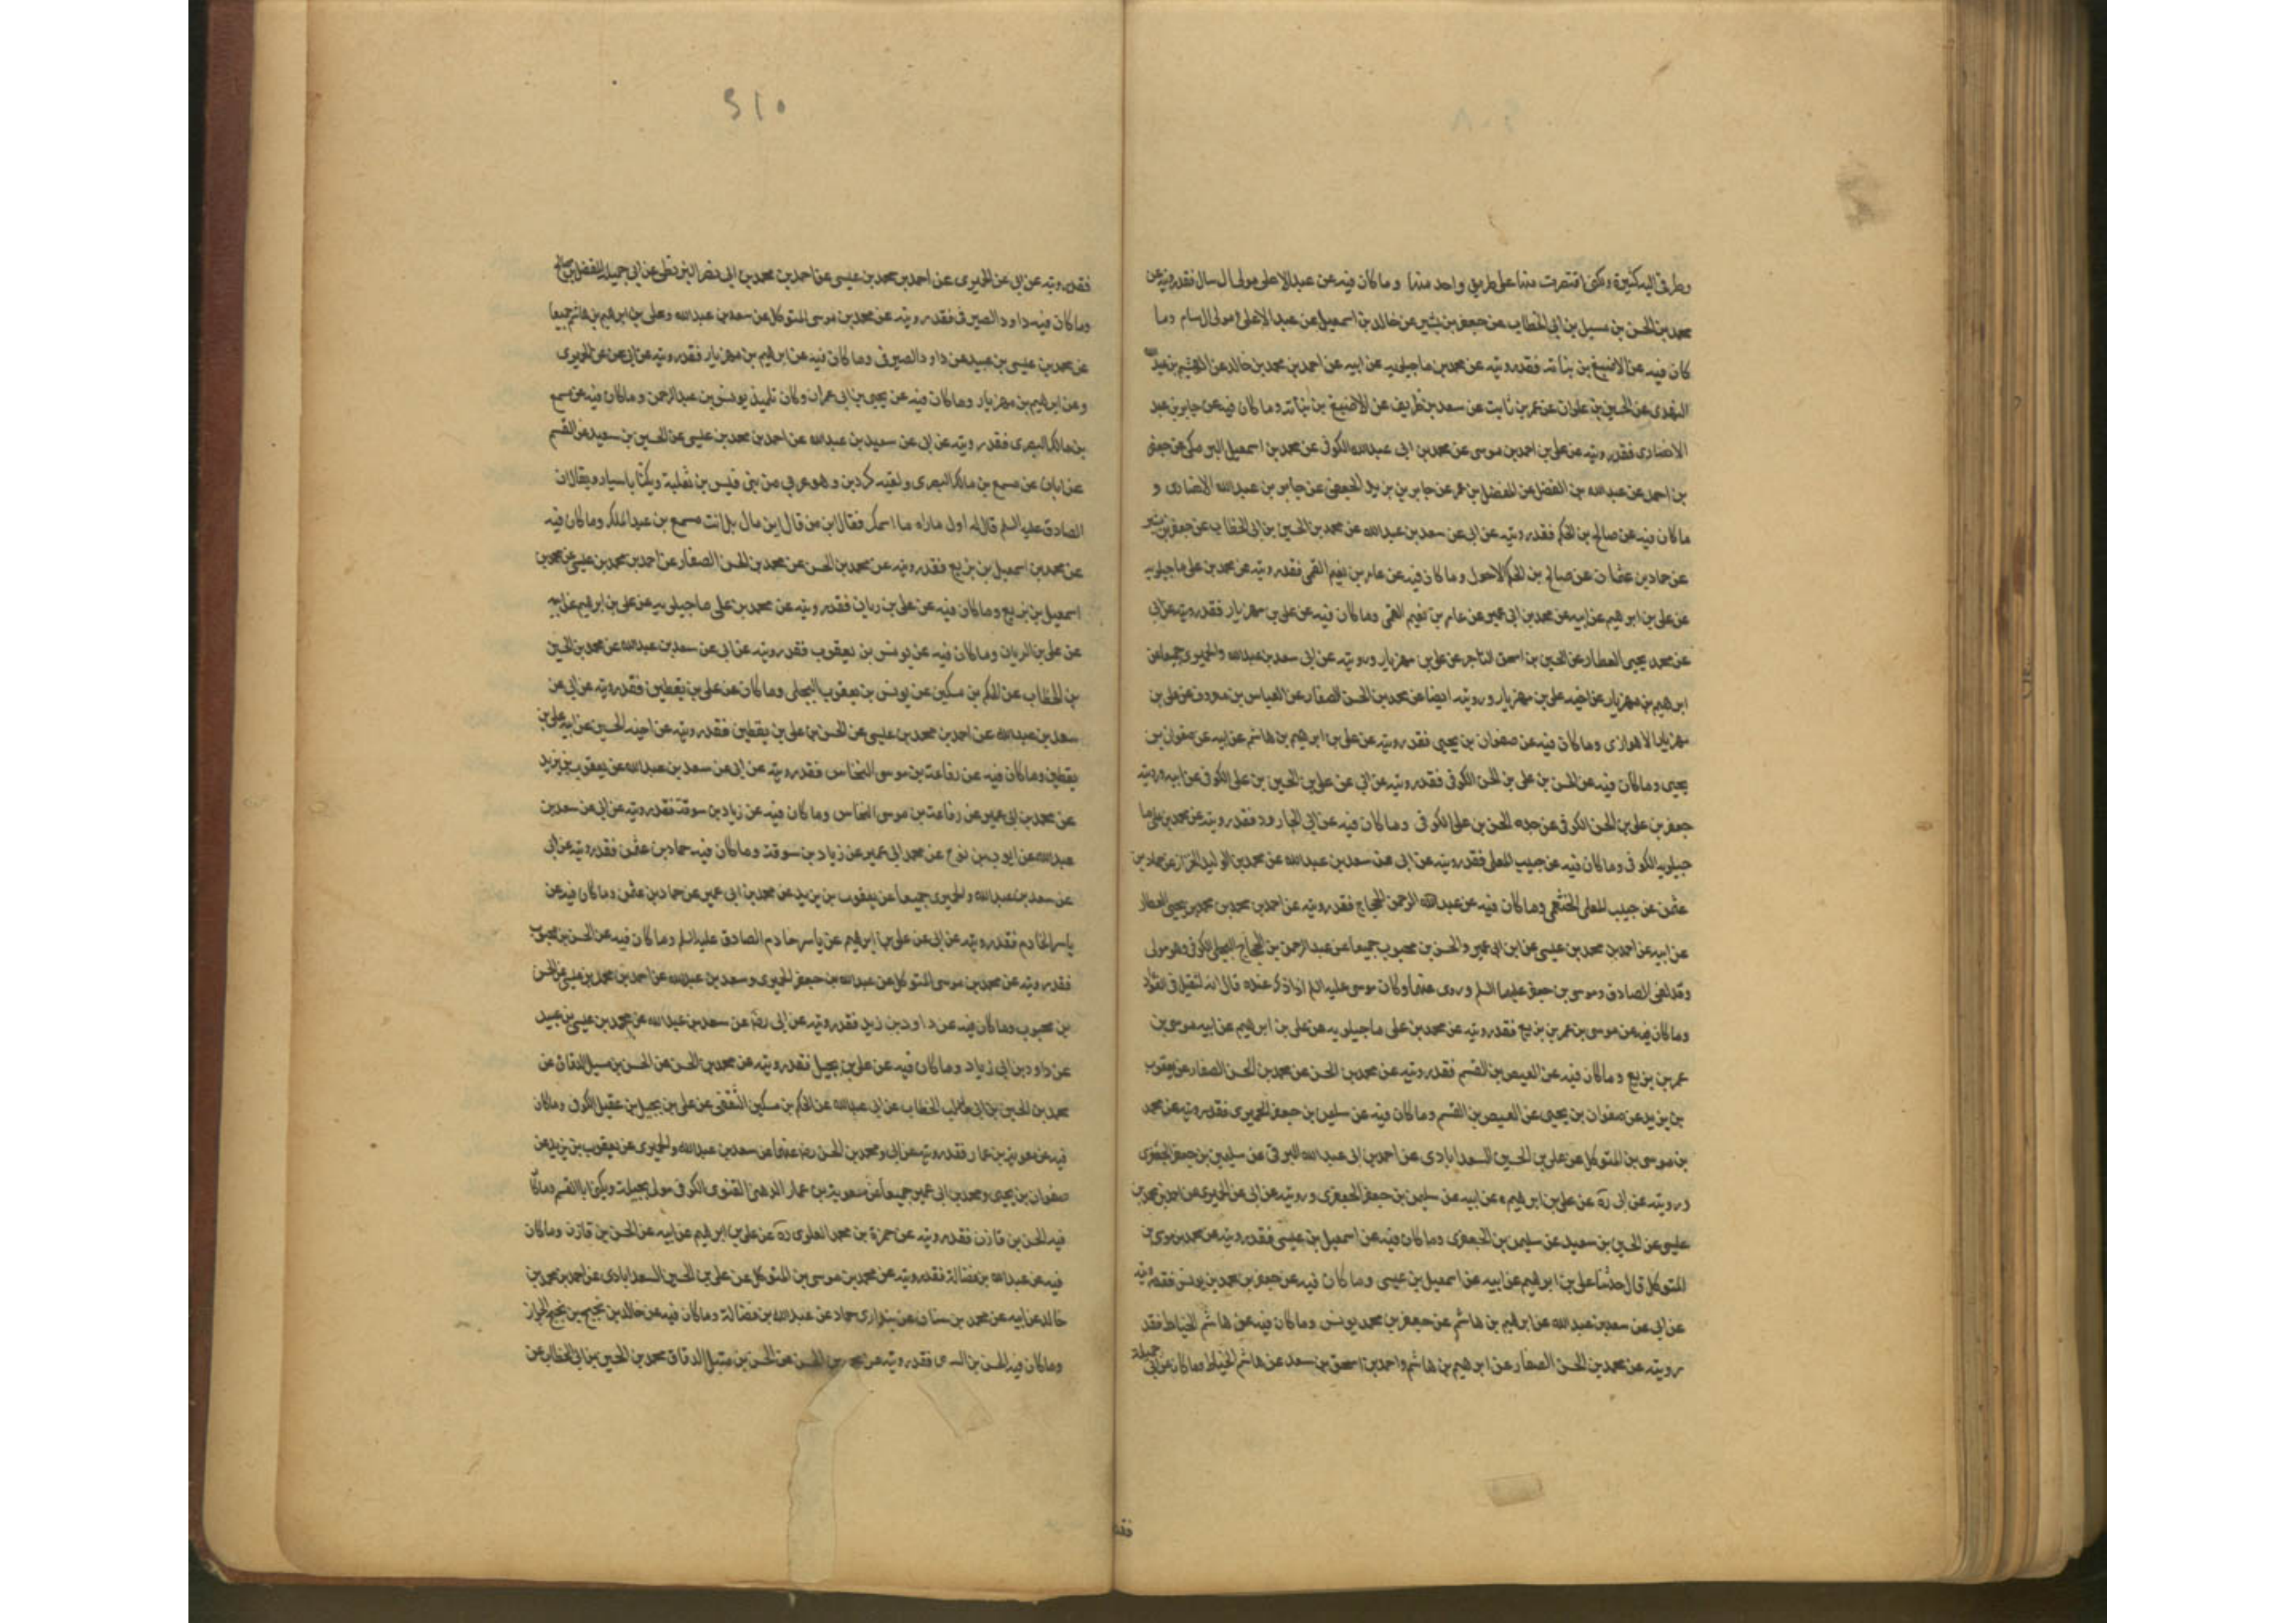 وطرقي اليه كثيرة ولكني اقتصرت منها على طريق واحد منها وما كان فيه عن عبد الاعلى مولى ال سام فقد رويته عن
محمد بن الحسن بن الخطاب عن جعفر بن بشير عن خالد بن اسمعيل عن عبد الاعلى مولى ال سام وما
كان فيه عن الاصبغ بن نباته فقد رويته عن محمد بن ماجيلويه عن ابيه عن احمد بن محمد بن خالد عن الهيثم بن عبد الله
النهدى عن الحسين بن علوان عن عمر بن ثابت عن سعد بن طريف عن الاصبغ بن نباته وما كان فيه عن جابر بن عبد
الانصارى فقد رويته عن على بن احمد بن موسى عن محمد بن ابى عبد الله الكوفى عن محمد بن اسمعيل البرمكى عن جعفر
بن احمد عن عبد الله بن الفضل عن المفضل بن عمر عن جابر بن يزيد الجعفى عن جابر بن عبد الله الانصارى و
ما كان فيه عن صالح بن الحكم فقد رويته عن ابى عن سعد بن عبد الله عن محمد بن الحسين بن ابى الخطاب عن جعفر بن بشير
عن حماد بن عثمان عن صالح بن الحكم الاحول وما كان فيه عن عامر بن نعيم القمى فقد رويته عن محمد بن على ماجيلويه
عن على بن ابرهيم عن ابيه عن محمد بن ابى عمير عن عامر بن نعيم القمى وما كان فيه عن على بن مهزيار فقد رويته عن ابى
عن محمد يحيى العطار عن الحسين بن اسحق التاجر عن على بن مهزيار ورويته عن ابى سعد بن عبد الله والحميرى جميعا عن
ابرهيم بن مهزيار عن اخيه على بن مهزيار ورويته ايضا عن محمد بن الحسن الصفار عن العباس بن معروف عن على بن
مهزيار الاهوازى وما كان فيه عن صفوان بن يحيى فقد رويته عن على بن ابرهيم بن هاشم عن ابيه عن صفوان بن
يحيى وما كان فيه عن الحسن بن على بن الحسن الكوفى فقد رويته عن ابى عن على بن الحسين بن على الكوفى عن ابيه ورويته
جعفر بن على بن الحسن الكوفى عن جده الحسن بن على الكوفى وما كان فيه عن ابى الجارود فقد رويته عن محمد بن على ما
جيلويه الكوفى وما كان فيه عن حبيب المعلى فقد رويته عن ابى عن سعد بن عبد الله عن محمد بن الوليد الخزاز عن حماد بن
عثمن عن حبيب المعلى الخثعمى وما كان فيه عن عبد الرحمن الحجاج فقد رويته عن احمد بن محمد بن محمد بن يحيى العطار
عن ابيه عن احمد بن محمد بن عيسى عن ابن ابى عمير والحسن بن محبوب جميعا عن عبد الرحمن بن الحجاج البجلى الكوفى وهو مولى
وقد لقى الصادق وموسى بن جعفر عليهما السلم وروى عنهما وكان موسى عليه السلم اذا ذكر عنده قال انه لثقيل فى الفؤاد
وما كان فيه عن موسى بن عمر بن بزيع فقد رويته عن محمد بن على ماجيلويه عن على بن ابرهيم عن ابيه موسى بن
عمر بن بزيع وما كان فيه عن العيص بن القسم فقد رويته عن محمد بن الحسن عن محمد بن الحسن الصفار عن يعقوب
بن يزيد عن صفوان بن يحيى عن العيص بن القسم وما كان فيه عن سليمن بن جعفر الحميرى فقد رويته عن محمد
بن موسى بن المتوكل عن على بن الحسين السعدابادى عن احمد بن ابى عبد الله البرقى عن سليمن بن جعفر الجعفرى
ورويته عن ابى ره عن على بن ابرهيم عن ابيه عن سليمن بن جعفر الجعفرى ورويته عن ابى عن الحميرى عن احمد بن محمد بن
عليى عن الحسين بن سعيد عن سليمن بن الجعفرى وما كان فيه عن اسمعيل بن عيسى فقد رويته عن محمد بن موسى بن
المتوكل قال حدثنا على بن ابرهيم عن ابيه عن اسمعيل بن عيسى وما كان فيه عن جعفر بن محمد بن يونس فقد رويته
عن ابى عن سعد بن عبد الله عن ابرهيم بن هاشم عن جعفر بن محمد يونس وما كان فيه عن هاشم الخياط فقد
رويته عن محمد بن الحسن الصفار عن ابرهيم بن هاشم واحمد بن اسحق بن سعد عن هاشم الخياط وما كان عن ابى جميله
فقد
فقد رويته عن ابى عن الحميرى عن احمد بن محمد بن عيسى عن احمد بن محمد بن ابى نصر البزنطى عن ابى جميلة المفضل بن صالح
وما كان فيه داود الصيرفى فقد رويته عن محمد بن موسى المتوكل عن سعد بن عبد الله وعلى بن ابرهيم بن هاشم جميعا
عن محمد بن عيسى بن عبيد عن داود الصيرفى وما كان فيه عن ابرهيم بن مهزيار فقد رويته عن ابى عن الحميرى
وعن ابرهيم بن مهزيار وما كان فيه عن يحيى بن ابى عمران وكان تلميذ يونس بن عبد الرحمن وما كان فيه عن مسمع
بن مالك البصرى فقد رويته عن ابى عن سعيد بن عبد الله عن احمد بن محمد بن عليى عن الحسين بن سعيد عن القسم
عن ابان عن مسمع بن مالك البصرى ولقبه كردين وهو عربى من بنى قيس بن ثعلبة ويكنا باسيار ويقال ان
الصادق عليه السلم قال له اول ماراه ما اسمك فقال ابن من قال ابن مال بل انت مسمع بن عبد الملك وما كان فيه
عن محمد بن اسمعيل بن بزيع فقد رويته عن محمد بن الحسن عن محمد بن الحسن الصفار عن احمد بن محمد بن عيسى عن محمد بن
اسمعيل بن بزيع وما كان فيه عن على بن ريان فقد رويته عن محمد بن على ماجيلويه عن على بن ابرهيم عن ابيه
عن على بن الريان وما كان فيه عن يونس بن يعقوب فقد رويته عن ابى عن سعد بن عبد الله عن محمد بن الحسين
بن الخطاب عن الحكم بن مسكين عن يونس بن يعقوب البجلى وما كان عن على بن يقطين فقد رويته عن ابى عن
سعد بن عبد الله عن احمد بن محمد بن عليى عن الحسن بن على بن يقطين فقد رويته عن اخيه الحسين عن ابيه على بن
يقطين وما كان فيه عن رفاعة بن موسى النخاس فقد رويته عن ابى عن سعد بن عبد الله عن يعقوب بن يزيد
عن محمد بن ابى عمير عن رفاعة بن موسى النخاس وما كان فيه عن زياد بن سوقة فقد رويته عن ابى عن سعد بن
عبد الله عن ايوب بن نوح عن محمد ابى عمير عن زياد بن سوقة وما كان فيه حماد بن عثمن فقد رويته عن ابى
عن سعد بن عبد الله والحميرى جميعا عن يعقوب بن يزيد عن محمد بن ابى عمير عن حماد بن عثمن وما كان فيه عن
ياسر الخادم فقد رويته عن ابى عن على بن ابرهيم عن ياسر خادم الصادق عليه السلم وما كان فيه عن الحسن بن محبوب
فقد رويته عن محمد بن موسى المتوكل عن عبد الله بن جعفر الحميرى وسعد بن عبد الله عن احمد بن محمد بن عيسى عن الحسن
بن محبوب وما كان فيه عن داود بن زيد فقد رويته عن ابى رضه عن سعد بن عبد الله عن محمد بن عيسى بن عبيد
عن داود بن ابى زياد وما كان فيه عن على بن بجيل فقد رويته عن محمد بن الحسن عن الحسن بن متيل الدقاق عن
محمد بن الحسين بن ابى طالب الخطاب عن ابى عبد الله عن الحكم بن مسكين الثقفى عن على بن بجيل بن عقيل الكوفى وما كان
فيه عن معوية بن عمار فقد رويته عن ابى ومحمد بن الحسن رضه عنهما عن سعد بن عبد الله والحميرى عن يعقوب بن يزيد عن
صفوان بن يحيى ومحمد بن ابى عمير جميعا عن معوية بن عمار الدهنى الغنوى الكوفى مولى بجيلة ويكنى ابا القسم وما كا
فيه الحسن بن قازن فقد رويته عن حمزة بن محمد العلوى ره عن على بن ابرهيم عن ابيه عن الحسن بن قازن وما كان
فيه عن عبد الله بن فضالة فقد رويته عن محمد بن موسى بن المتوكل عن على بن الحسين السعدابادى عن احمد بن محمد بن
خالد عن ابيه عن محمد بن سنان عن بندار حماد عن عبد الله بن فضالة وما كان فيه عن خالد بن نجيح بن نجيح الجواز
وما كان فيه الحسن بن السرى فقد رويته عن محمد بن الحسن عن الحسن بن متيل الدقاق محمد بن الحسين بن ابى الخطاب عن